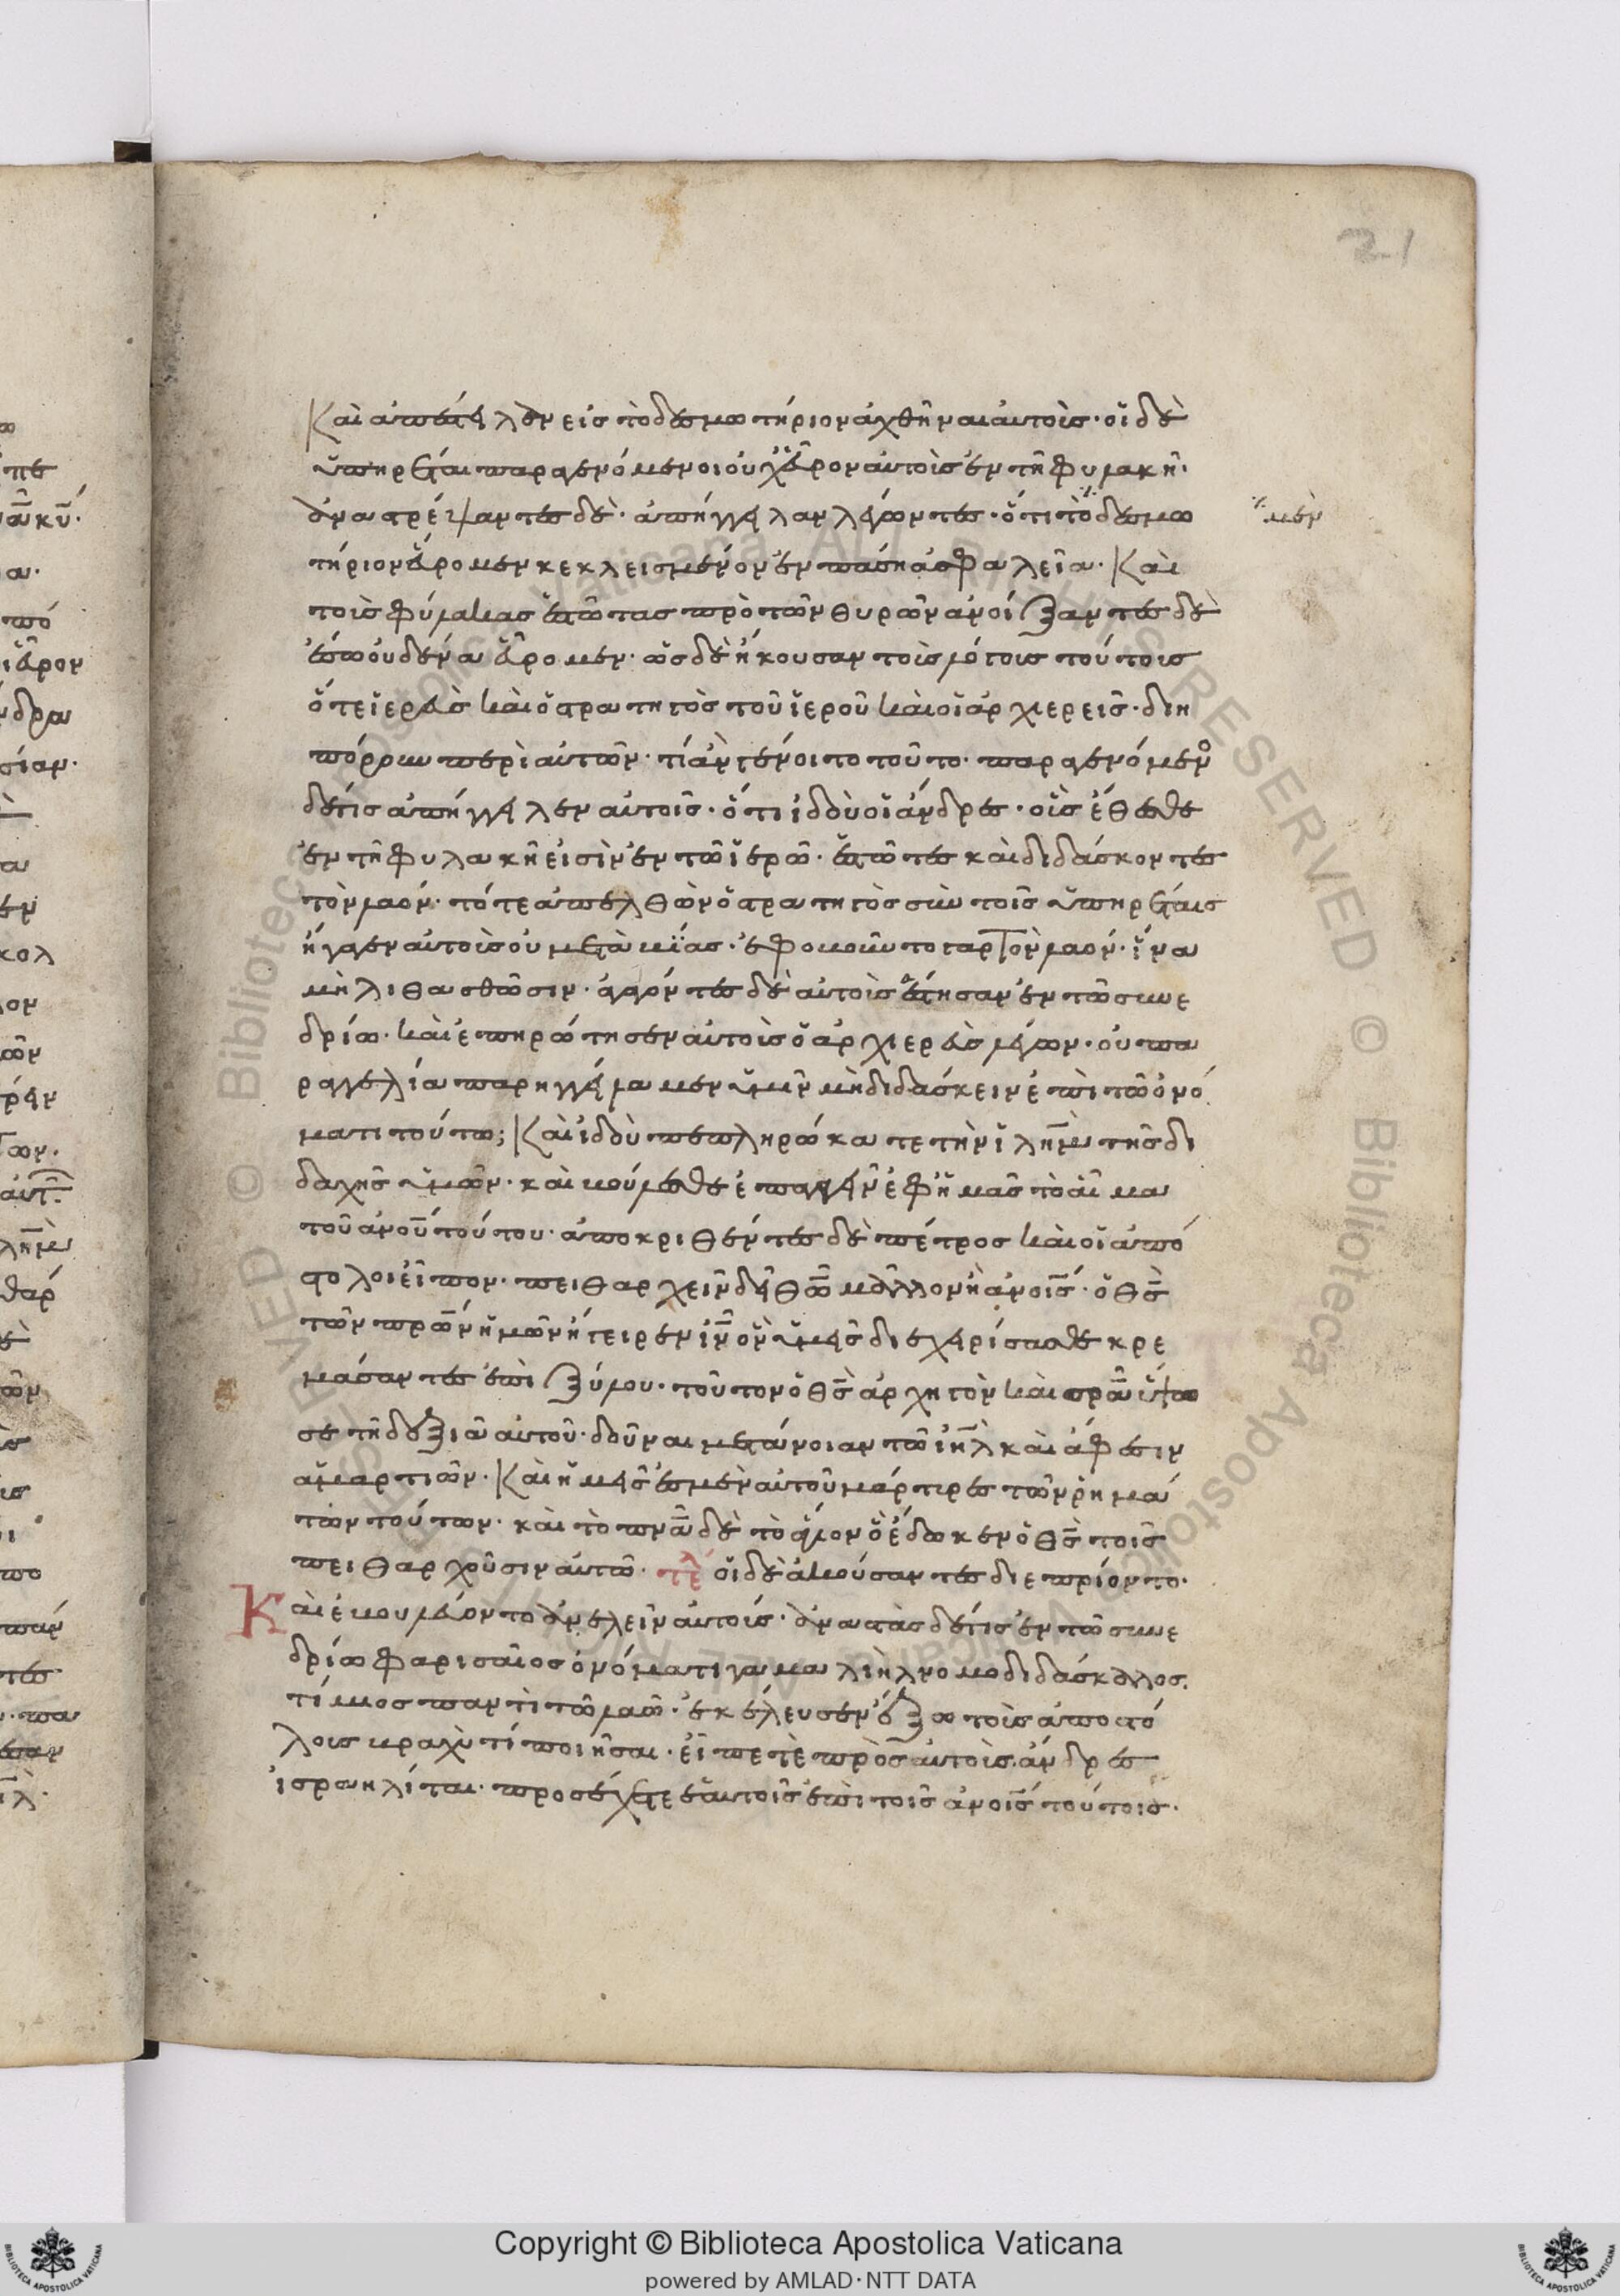 21
Καὶ ἀπέστειλαν εἰς τὸ δεσμωτήριον ἀχθῆναι αὐτούς· οἱ δὲ
ὑπηρέται παραγενόμενοι οὐχ εὗρον αὐτοὺς ἐν τῆ φυλακῆ·
ἀναστρέψαντες δὲ· ἀπήγγειλαν λέγοντες· ὅτι τὸ δεσμω
μὲν
τήριον εὕρομεν κεκλεισμένον ἐν πάση ἀσφαλεία· Καὶ
τοὺς φύλακας ἑστῶτας πρὸ τῶν θυρῶν ἀνοίξαντες δὲ
ἔσω οὐδένα εὕρομεν· ὡς δὲ ἤκουσαν τοὺς λόγους τούτους
ὅ τε ἱερεὺς καὶ ὁ στρατηγὸς τοῦ ἱεροῦ καὶ οἱ ἀρχιερεῖς· διη
πόρουν περὶ αὐτῶν· τί ἂν γένοιτο τοῦτο· παραγενόμενο
δέ τις ἀπήγγειλεν αὐτοῖς· ὅτι ἰδοὺ οἱ ἄνδρες· οὓς ἔθεσθε
ἐν τῆ φυλακῆ εἰσὶν ἐν τῶ ἱερῶ· ἑστῶτες καὶ διδάσκοντες
τὸν λαόν· τότε ἀπελθὼν ὁ στρατηγὸς σὺν τοῖς ὑπηρέταις
ἤγαγεν αὐτοὺς οὐ μετὰ βίας· ἐφοβοῦντο γὰρ τὸν λαόν· ἵνα
μὴ λιθασθῶσιν· ἀγαγόντες δὲ αὐτοὺς ἔστησαν ἐν τῶ συνε
δρίω· καὶ ἐπηρώτησεν αὐτοὺς ὁ ἀρχιερεὺς λέγων· οὐ πα
ραγγελία παρηγγείλαμεν ὑμῖν μὴ διδάσκειν ἐπὶ τῶ ὀνό
ματι τούτω; Καὶ ἰδοὺ πεπληρώκατε τὴν ἱλημ τῆς δι
δαχῆς ὑμῶν· καὶ βούλεσθε ἐπαγαγεῖν ἐφ ἡμᾶς τὸ αἷμα
τοῦ ανου τούτου· ἀποκριθέντες δὲ πέτρος καὶ οἱ ἀπό
στολοι εἶπον· πειθαρχεῖν δεῖ θω μᾶλλον ἢ ανοις· ὁ θς
τῶν πρων ἡμῶν ἤγειρεν ιν ὃν ὑμεῖς διεχειρίσασθε κρε
μάσαντες ἐπὶ ξύλου· τοῦτον ὁ θς ἀρχηγὸν καὶ σρα ὕψω
σε τῆ δεξιᾶ αὐτοῦ· δοῦναι μετάνοιαν τῶ ιηλ καὶ ἄφεσιν
ἁμαρτιῶν· Καὶ ἡμεῖς ἐσμὲν αὐτοῦ μάρτυρες τῶν ῥημά
των τούτων· καὶ τὸ πνα δὲ τὸ ἅγιον ὃ ἔδωκεν ὁ θς τοῖς
πειθαρχοῦσιν αὐτῶ· τελ οἱ δὲ ἀκούσαντες διεπρίοντο·
Καὶ ἐβουλεύοντο ἀνελεῖν αὐτούς· ἀναστὰς δέ τις ἐν τῶ συνε
δρίω φαρισαῖος ὀνόματι γαμαλιὴλ νομοδιδάσκαλος
τίμιος παντὶ τῶ λαῶ· ἐκέλευσεν ἔξω τοὺς ἀποστό
λους βραχύ τι ποιῆσαι· εἶπέ τε πρὸς αὐτούς ἄνδρες
ἰσραηλίται· προσέχετε ἑαυτοῖς ἐπὶ τοῖς ανοις τούτοις·
Copyright © Biblioteca Apostolica Vaticana
powered by AMLAD·NTT DATA